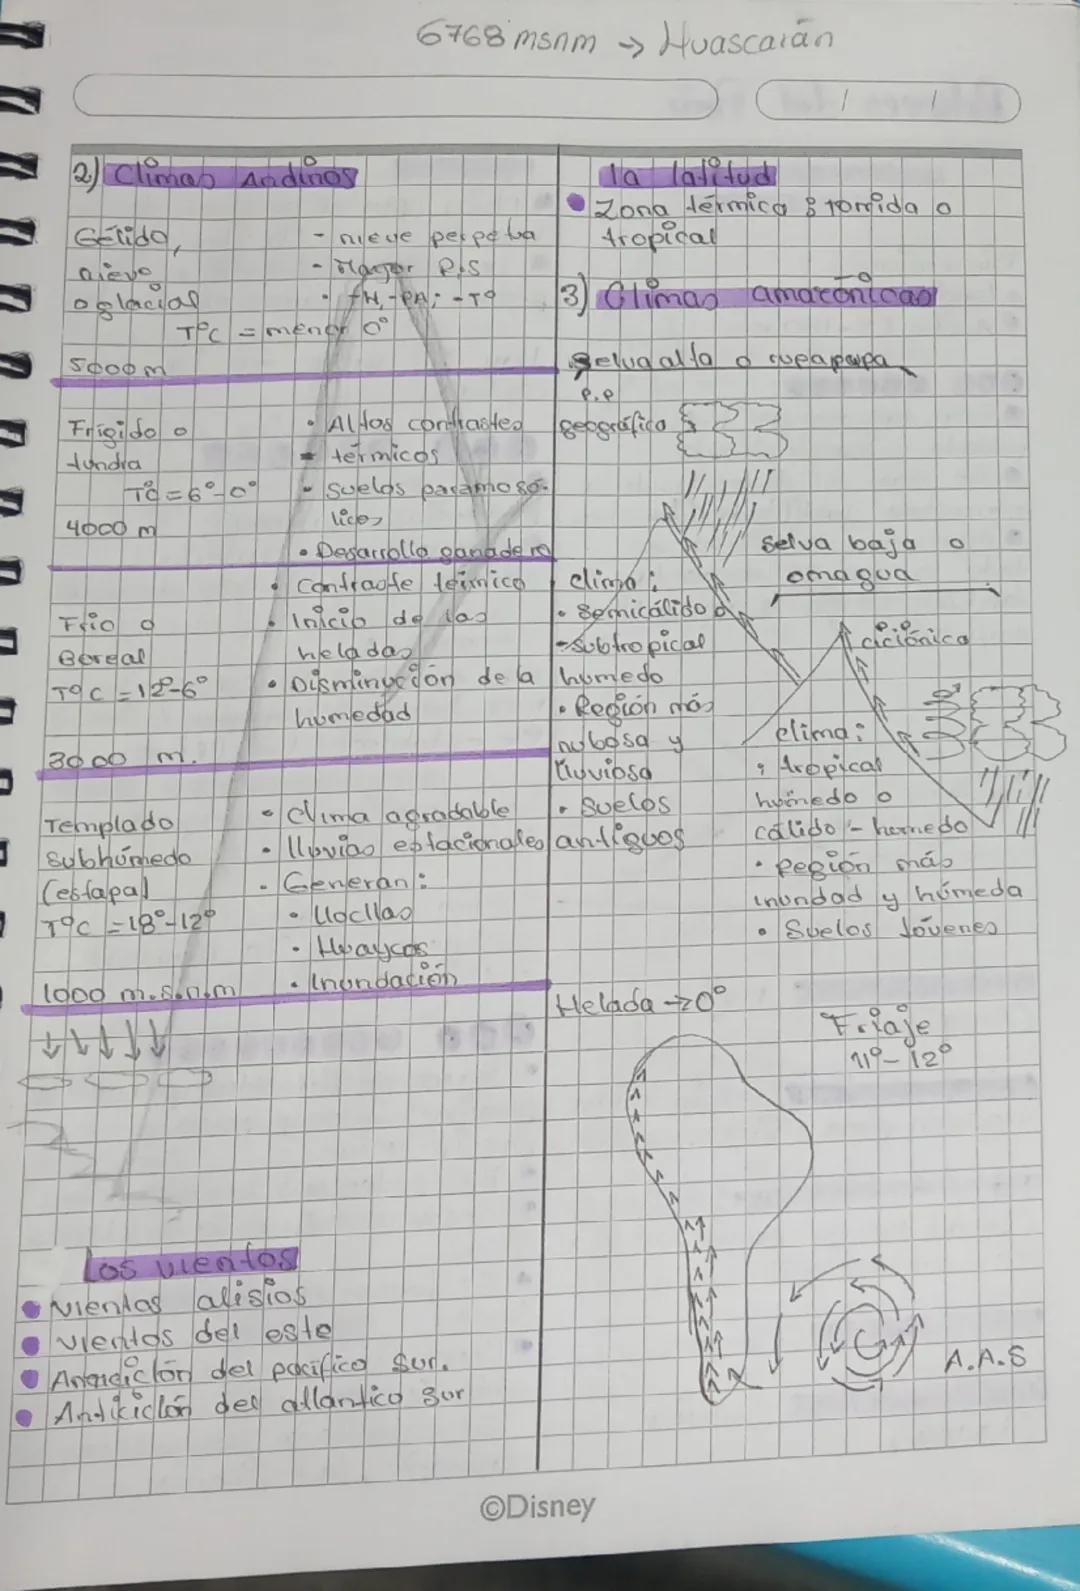 6768 msnm → Huascarán
2) Climas Andinos
Gélido,
nievo
o glacial
T°C = menor 0°
- nieve perpetua
- Mayor R.S
- +H, -PA; -T°
5000 m
Frígido o
tundra
T° = 6°-0°
4000 m
• Altos contrastes
- térmicos
- Suelos paramoso-
licos
• Desarrollo ganadero
Frio o
Boreal
T°C = 12°-6°
• Contraste térmico
• Inicio de las
heladas
• Disminución de la
humedad
3000 m.
Templado
Subhúmedo
(estapa)
T°C = 18°-12°
• Clima agradable
• lluvias estacionales
- Generan:
• Llocllas
• Huaycos
• Inundación
1000 m.s.n.m
Los vientos
• Vientas alisios
• Vientos del este
• Antidiclón del pacífico Sur.
• Anticiclón del atlantico Sur
la latitud
• Zona térmica : tórrida o
tropical
3) Climas amazónicas
Selva alta o rupa rupa
P.P
geográfica
clima:
• Semicálido o
- Subtropical
húmedo
• Región más
nubosa y
lluviosa
• Suelos
antiguos
Selva baja o
omagua
P.P
ciclónica
clima:
• tropical
húmedo o
cálido - humedo
• Región más
inundad y húmeda
• Suelos Jóvenes
Helada → 0°
Friaje
11° - 12°
A.A.S
©Disney